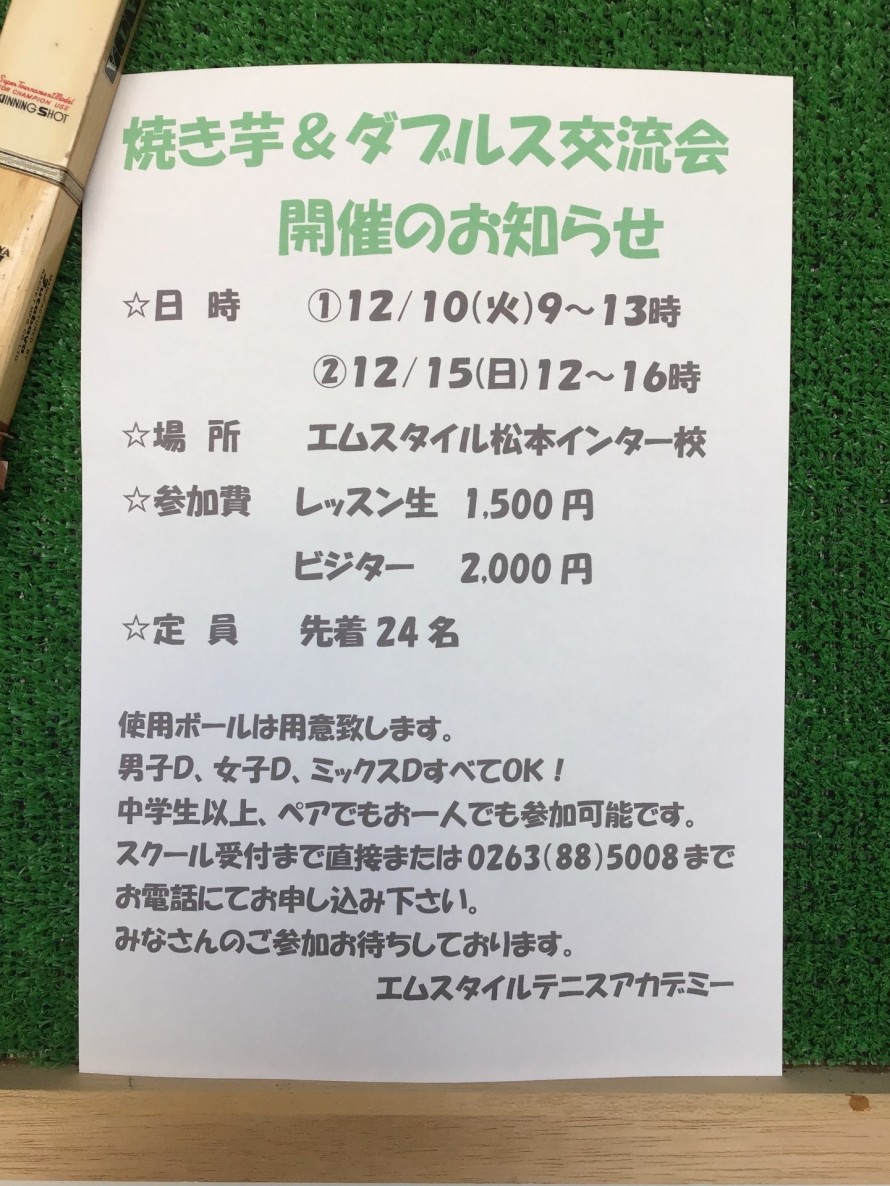 Super Tournament Model
FOR CHAMPION USE
WINNING SHOT
焼き芋＆ダブルス交流会
開催のお知らせ
☆日 時 ①12/10(火)9～13時
②12/15(日)12～16時
☆場 所 エムスタイル松本インター校
☆参加費 レッスン生 1,500円
ビジター 2,000円
☆定 員 先着24名
使用ボールは用意致します。
男子D、女子D、ミックスDすべてOK！
中学生以上、ペアでもお一人でも参加可能です。
スクール受付まで直接または0263(88)5008まで
お電話にてお申し込み下さい。
みなさんのご参加お待ちしております。
エムスタイルテニスアカデミー